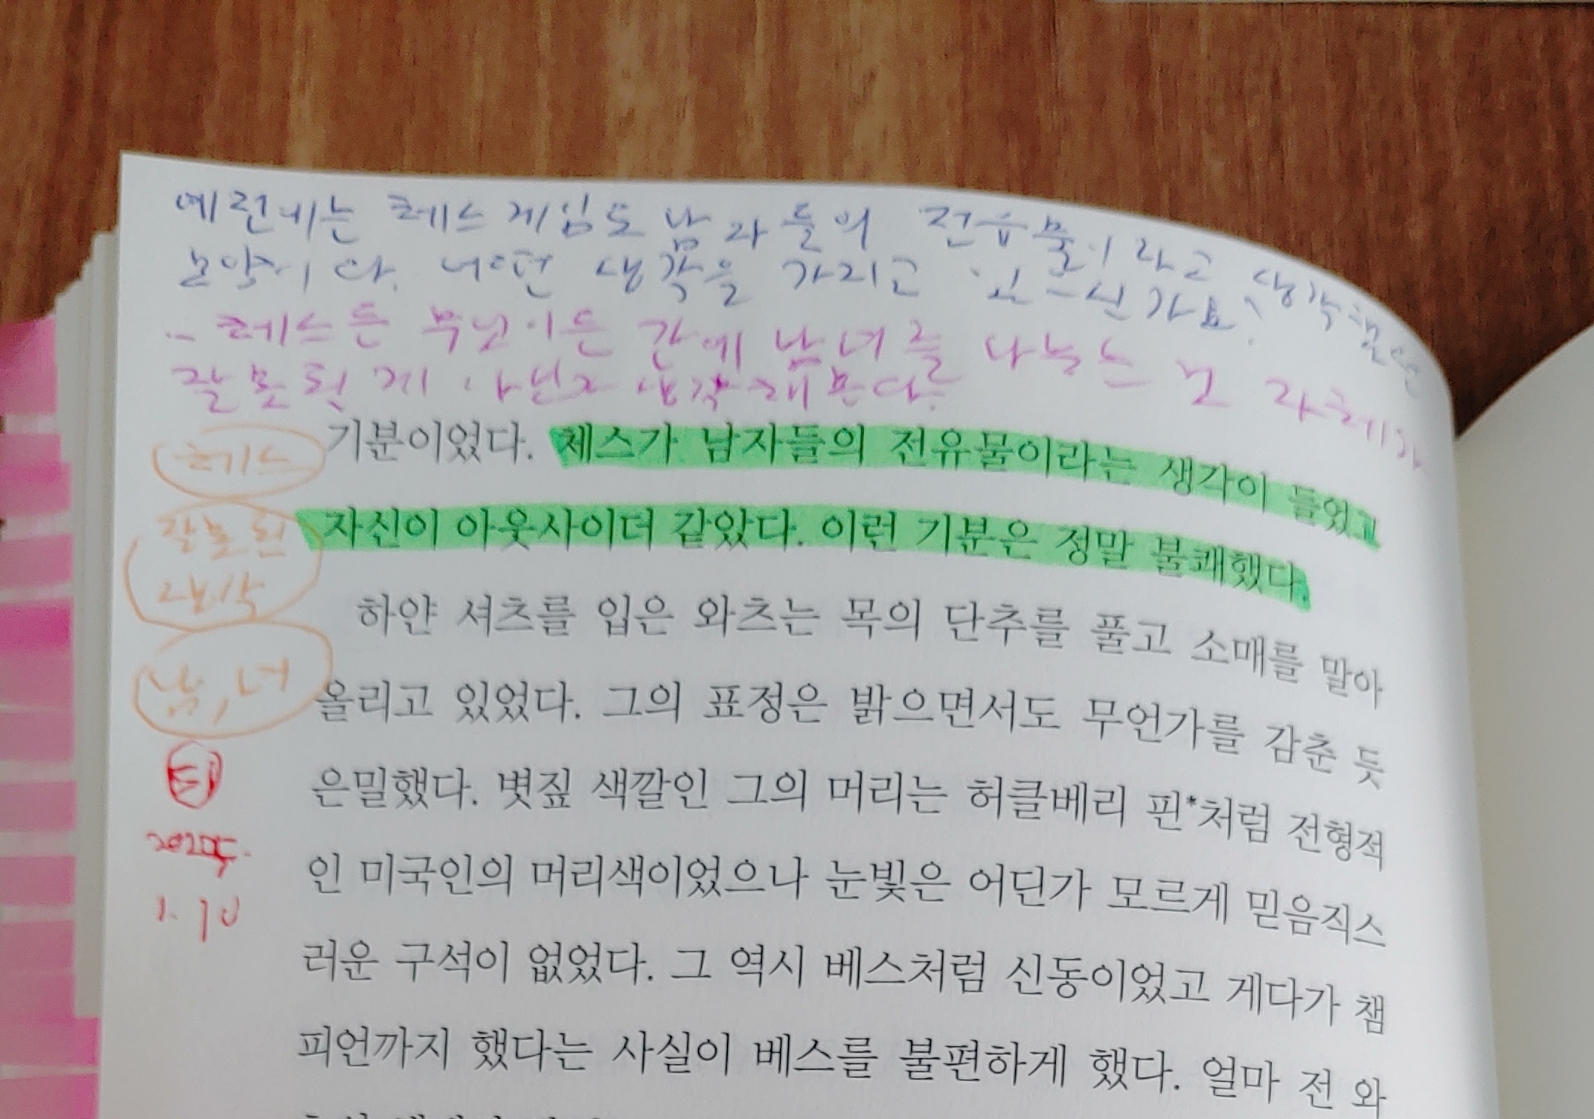 예전에는 체스 게임도 남자들의 전유물이라고 생각했던
모양이다. 어떤 생각을 가지고 있으신가요?
체스든 무엇이든 간에 남녀를 나누는 것 자체가
잘못된 게 아닌지 생각해본다.
기분이었다. 체스가 남자들의 전유물이라는 생각이 들었고
체스
자신이 아웃사이더 같았다. 이런 기분은 정말 불쾌했다.
잘못된
생각
하얀 셔츠를 입은 와츠는 목의 단추를 풀고 소매를 말아
남, 녀
올리고 있었다. 그의 표정은 밝으면서도 무언가를 감춘 듯
은밀했다. 볏짚 색깔인 그의 머리는 허클베리 핀*처럼 전형적
인 미국인의 머리색이었으나 눈빛은 어딘가 모르게 믿음직스
1. 10
러운 구석이 없었다. 그 역시 베스처럼 신동이었고 게다가 챔
피언까지 했다는 사실이 베스를 불편하게 했다. 얼마 전 와